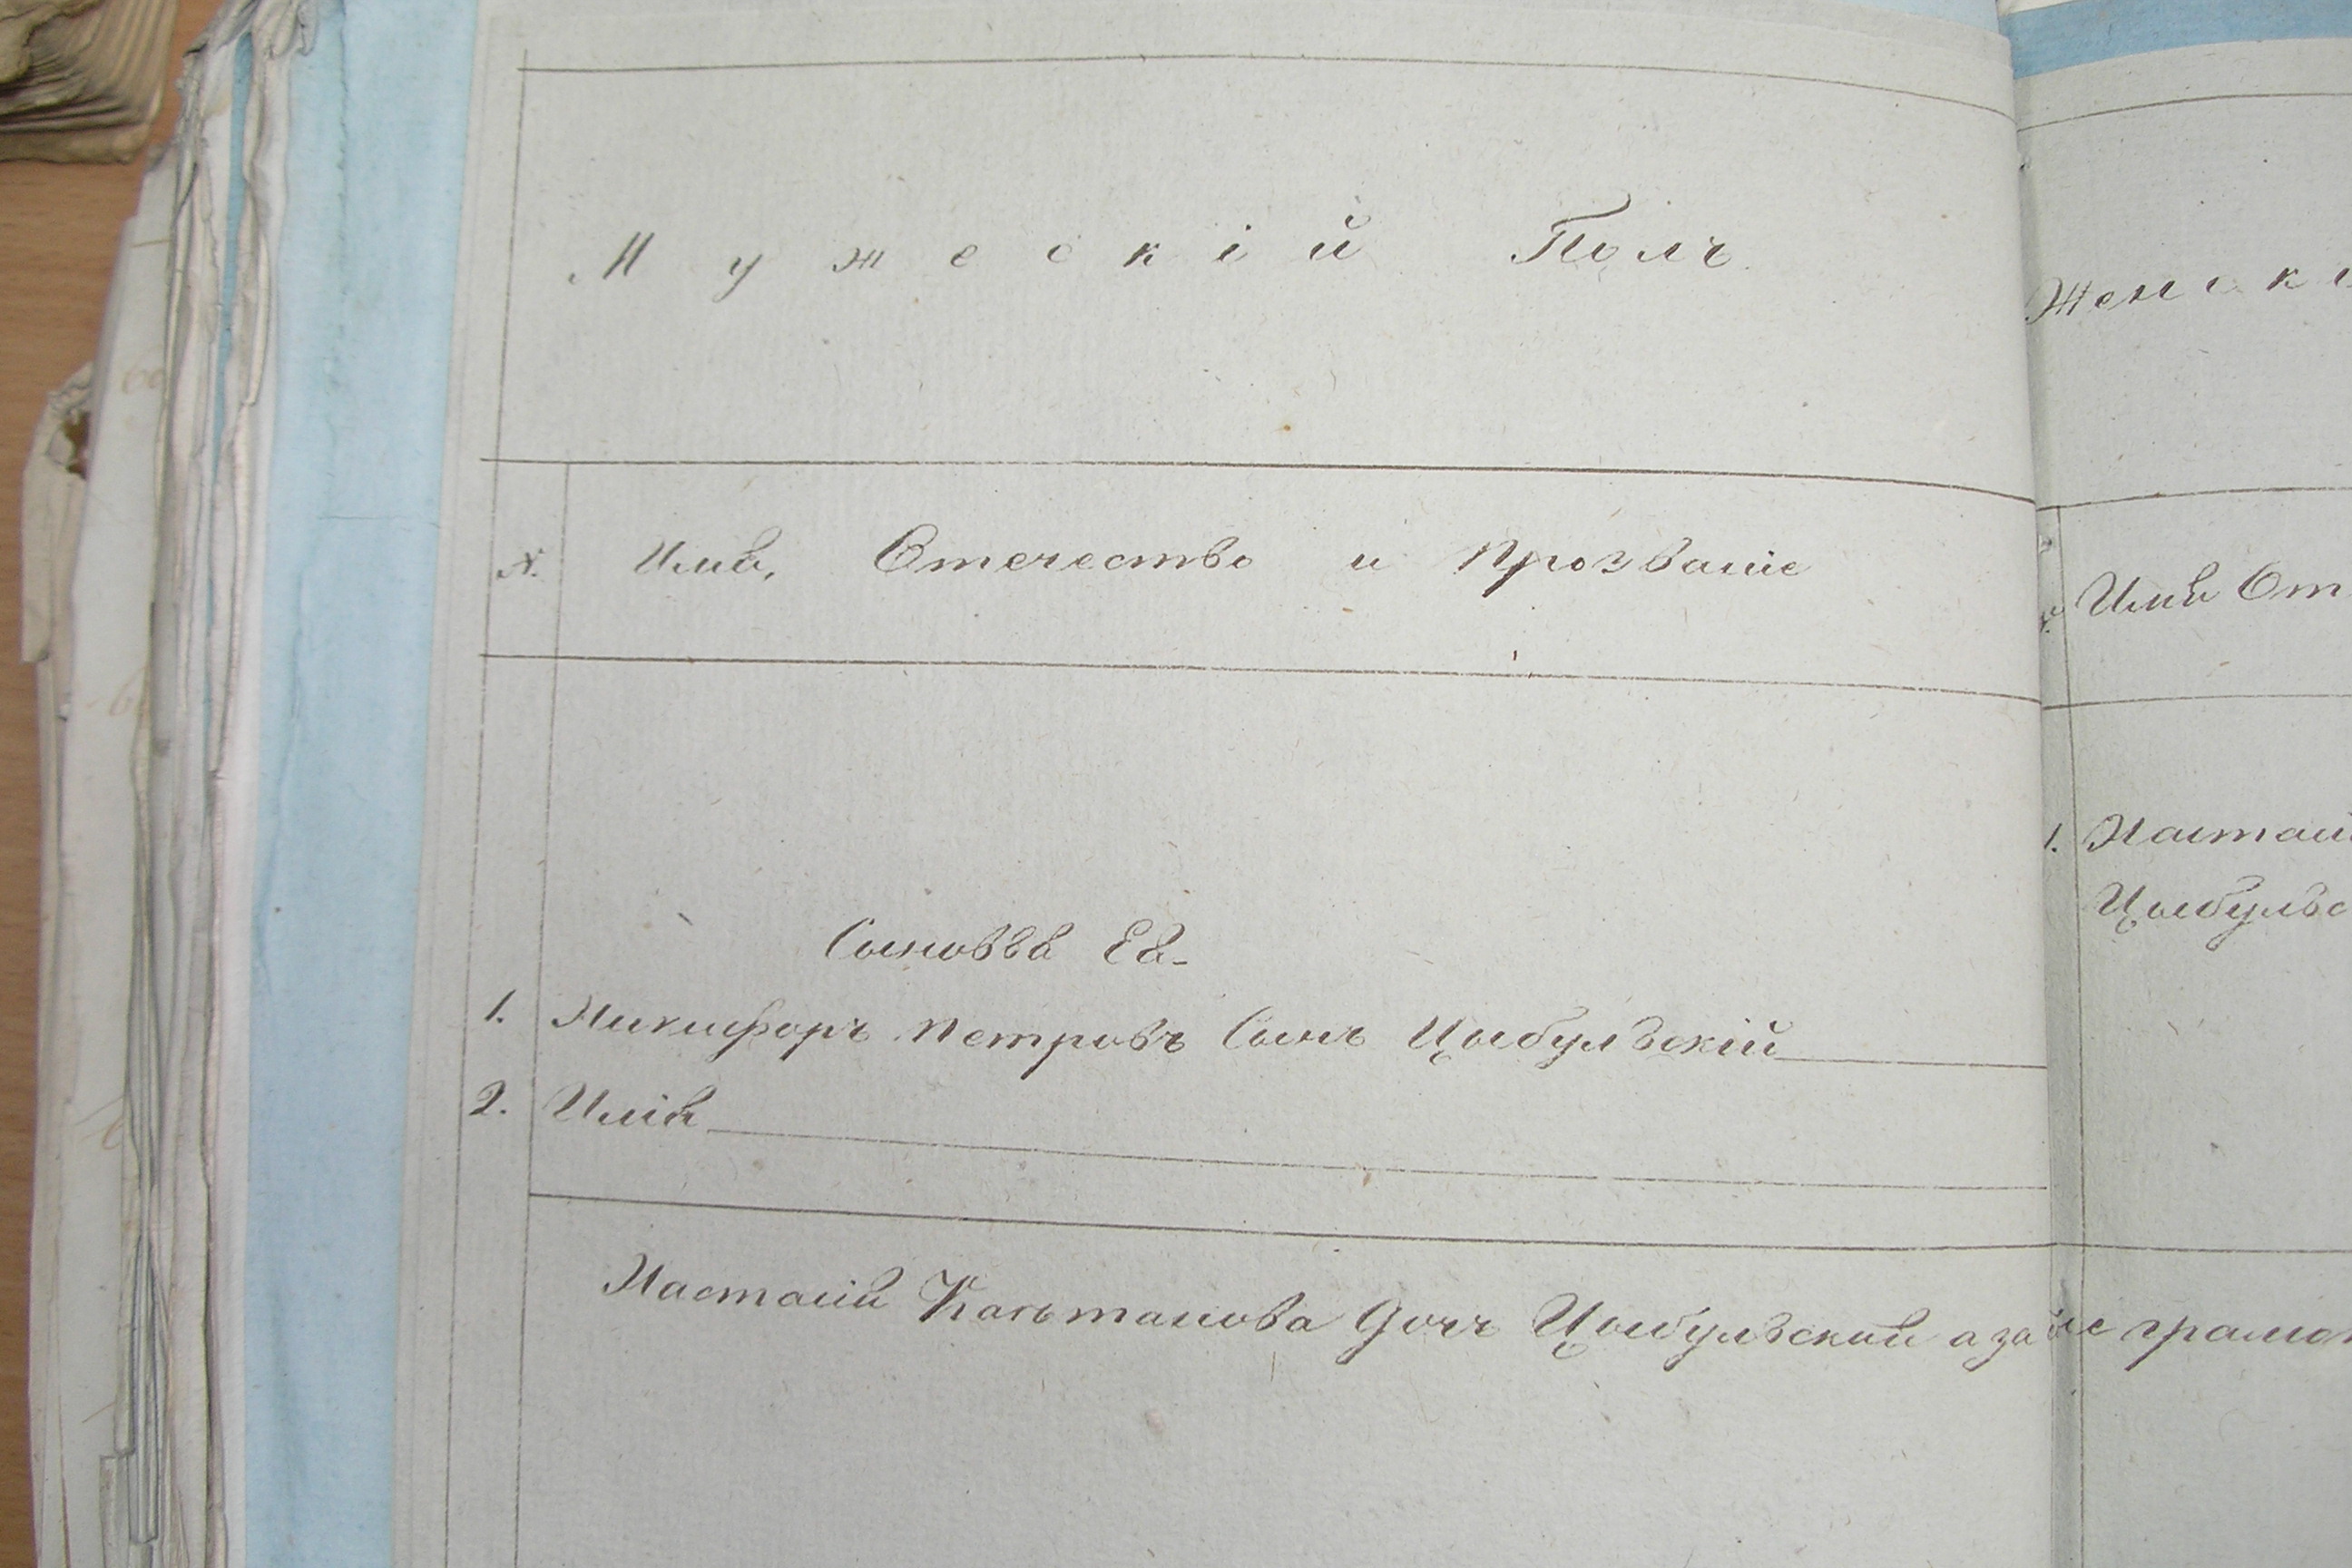 Мужескій Полъ.
№. Имя, Отечество и Прозваніе
Сыновья Ея-
1. Никифоръ Петровъ Сынъ Цыбульскій
2. Илія
Настасія Каптанова Дочь Цыбульская а за не грамот
Женскі
Имя От
1. Настасі
Цыбульс